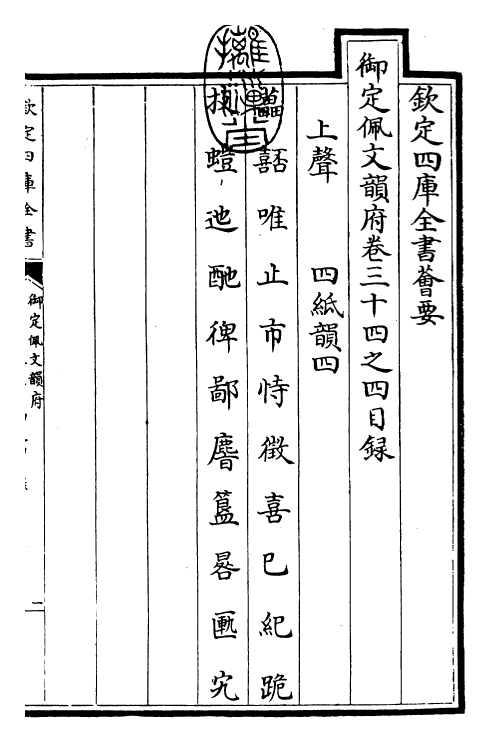 欽定四庫全書薈要
御定佩文韻府卷三十四之四目録
上聲 四紙韻四
嚭唯止市恃徵喜已紀跪
螘迆酏俾鄙麿簋晷匭宄
欽定四庫全書
御定佩文韻府